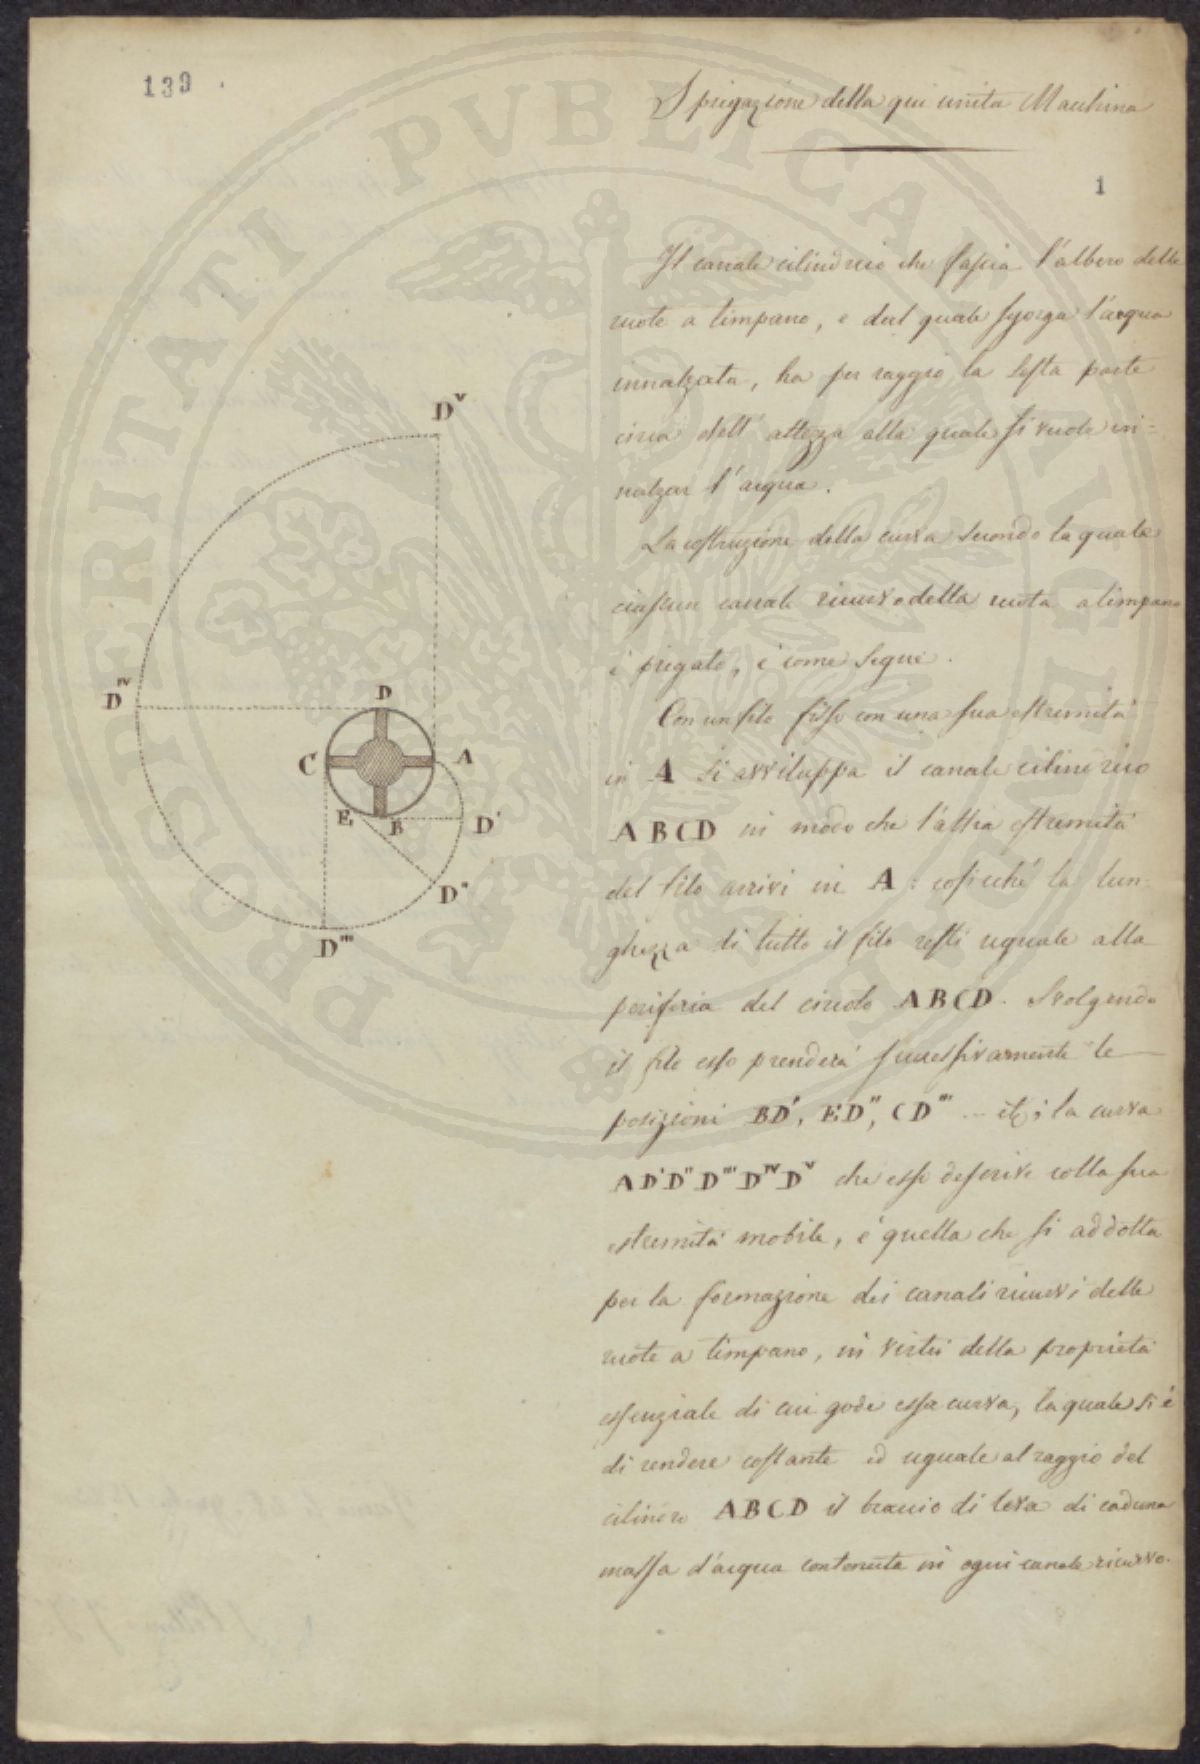 139
Spiegazione della qui unita Macchina
1
Il canale cilindrico che fascia l'albero delle
ruote a timpano, e dal quale sgorga l'acqua
innalzata, ha per raggio la sesta parte
circa dell' altezza alla quale si vuole in=
nalzar l'acqua.
La costruzione della curva secondo la quale
ciascun canale ricurvo della ruota a timpano
è piegato, è come segue.
Con un filo fisso con una sua estremità
in A si avviluppa il canale cilindrico
ABCD in modo che l'altra estremità
del filo arrivi in A: cosicché la lun-
ghezza di tutto il filo resti uguale alla
periferia del circolo ABCD. Svolgendo
il filo esso prenderà successivamente le
posizioni BD', ED'', CD''' ... etc; la curva
AD'D''D'''DIVDV che esso descrive colla sua
estremità mobile, è quella che si addotta
per la formazione dei canali ricurvi delle
ruote a timpano, in virtù della proprietà
essenziale di cui gode essa curva, la quale si è
di rendere costante ed uguale al raggio del
cilindro ABCD il braccio di leva di caduna
massa d'acqua contenuta in ogni canale ricurvo.
DV
DIV
D
C
A
E
B
D'
D''
D'''
PROSPERITATI PVBLICAE